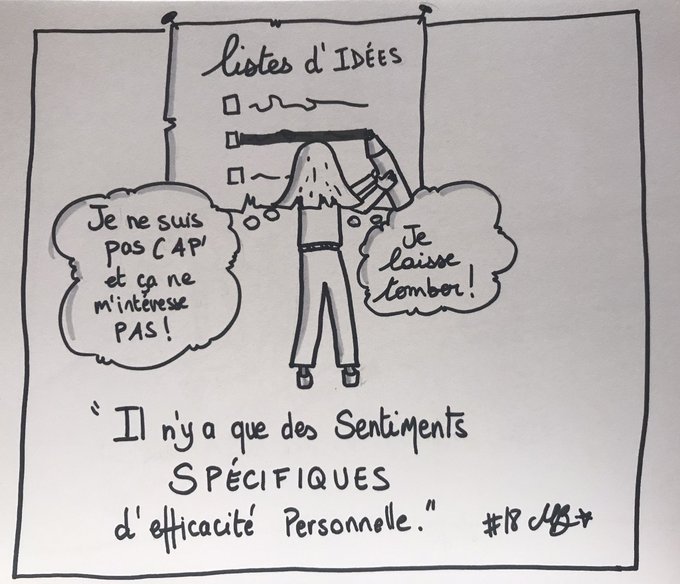 listes d'IDÉES
Je ne suis
pas CAP'
et ça ne
m'intéresse
PAS!
Je
laisse
tomber!
"Il n'y a que des Sentiments
SPÉCIFIQUES
d'efficacité Personnelle."
#18